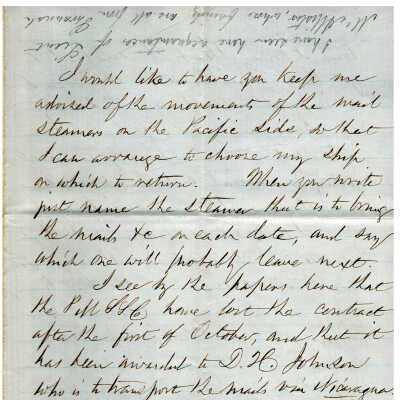 I have seen here acquaintances of Lieut
McAllister, whose family are all from Savannah
I would like to have you keep me
advised of the movements of the mail
steamers on the Pacific side, so that
I can arrange to choose my ship
on which to return. When you write
just name the steamer that is to bring
the mails &c on each date, and say
which one will probably leave next.
I see by the papers here that
the P M SS Co have lost the contract
after the first of October, and that it
has been awarded to D. H. Johnson
who is to transport the mails via Nicaragua.